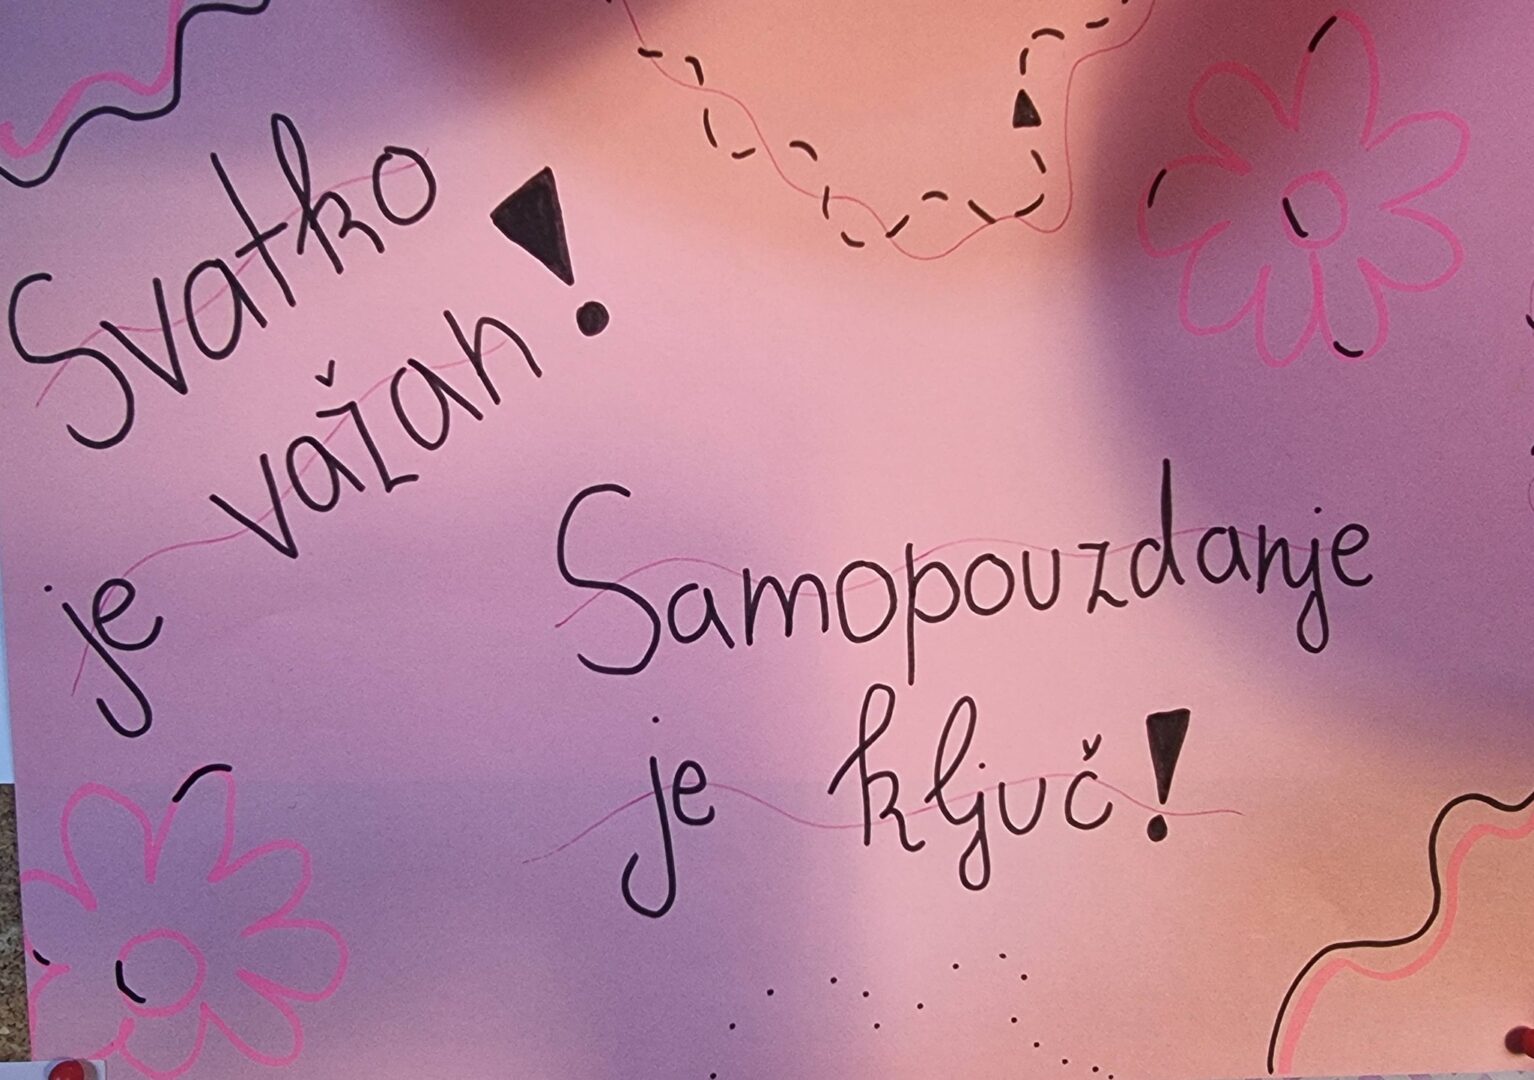 Svatko
je važan!
Samopouzdanje
je ključ!